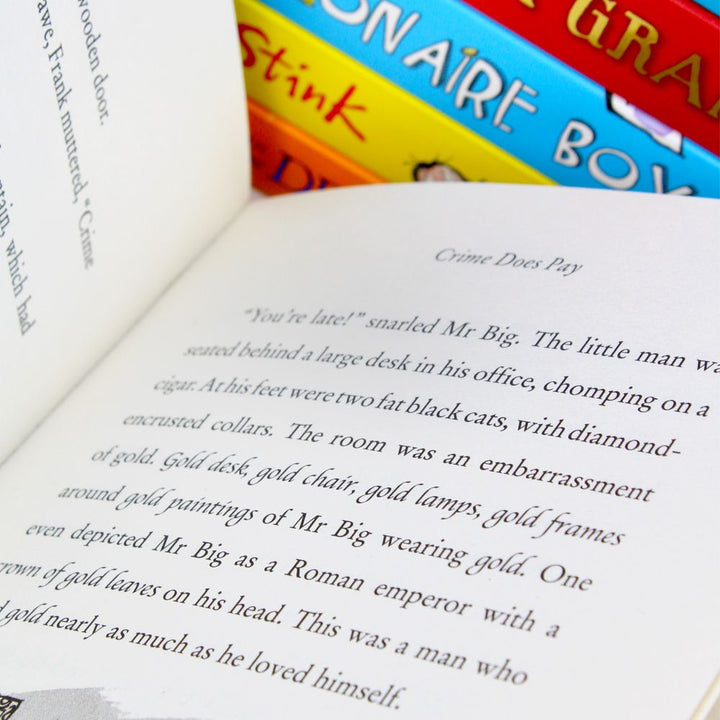 wooden door.
awe, Frank muttered, “Crime
ntain, which had
GRA
IONAIRE BOY
Stink
Crime Does Pay
“You’re late!” snarled Mr Big. The little man wa
seated behind a large desk in his office, chomping on a
cigar. At his feet were two fat black cats, with diamond-
encrusted collars. The room was an embarrassment
of gold. Gold desk, gold chair, gold lamps, gold frames
around gold paintings of Mr Big wearing gold. One
even depicted Mr Big as a Roman emperor with a
crown of gold leaves on his head. This was a man who
d gold nearly as much as he loved himself.